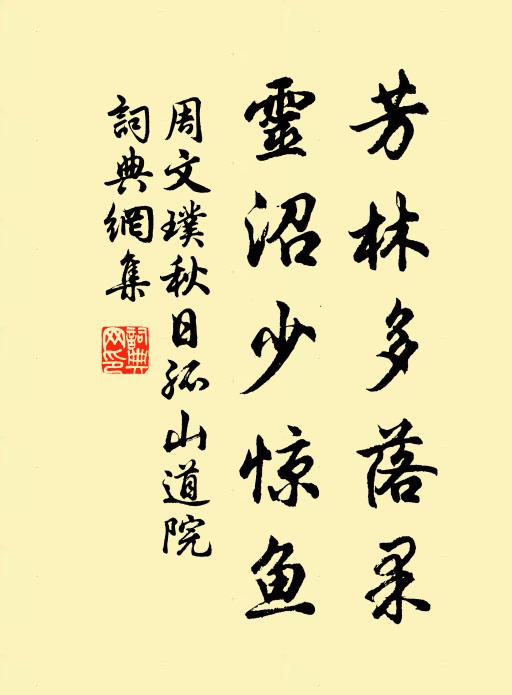 芳林多落果
靈沼少惊鱼
周文璞秋日孤山道院
詞典網集
詞典网印